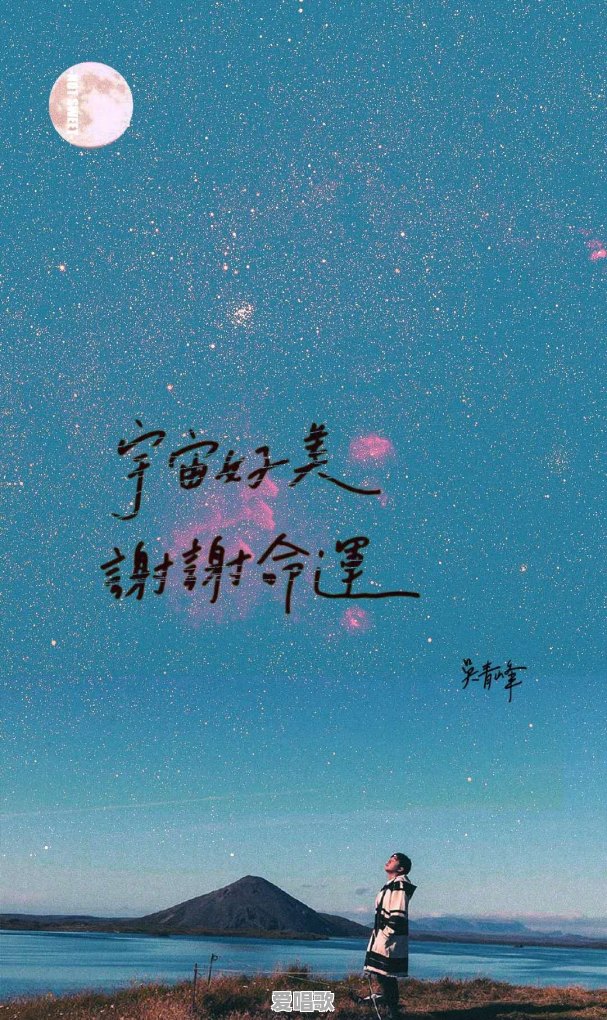 HOT SWEET
宇宙好美
謝謝命運
吳青峰
爱唱歌